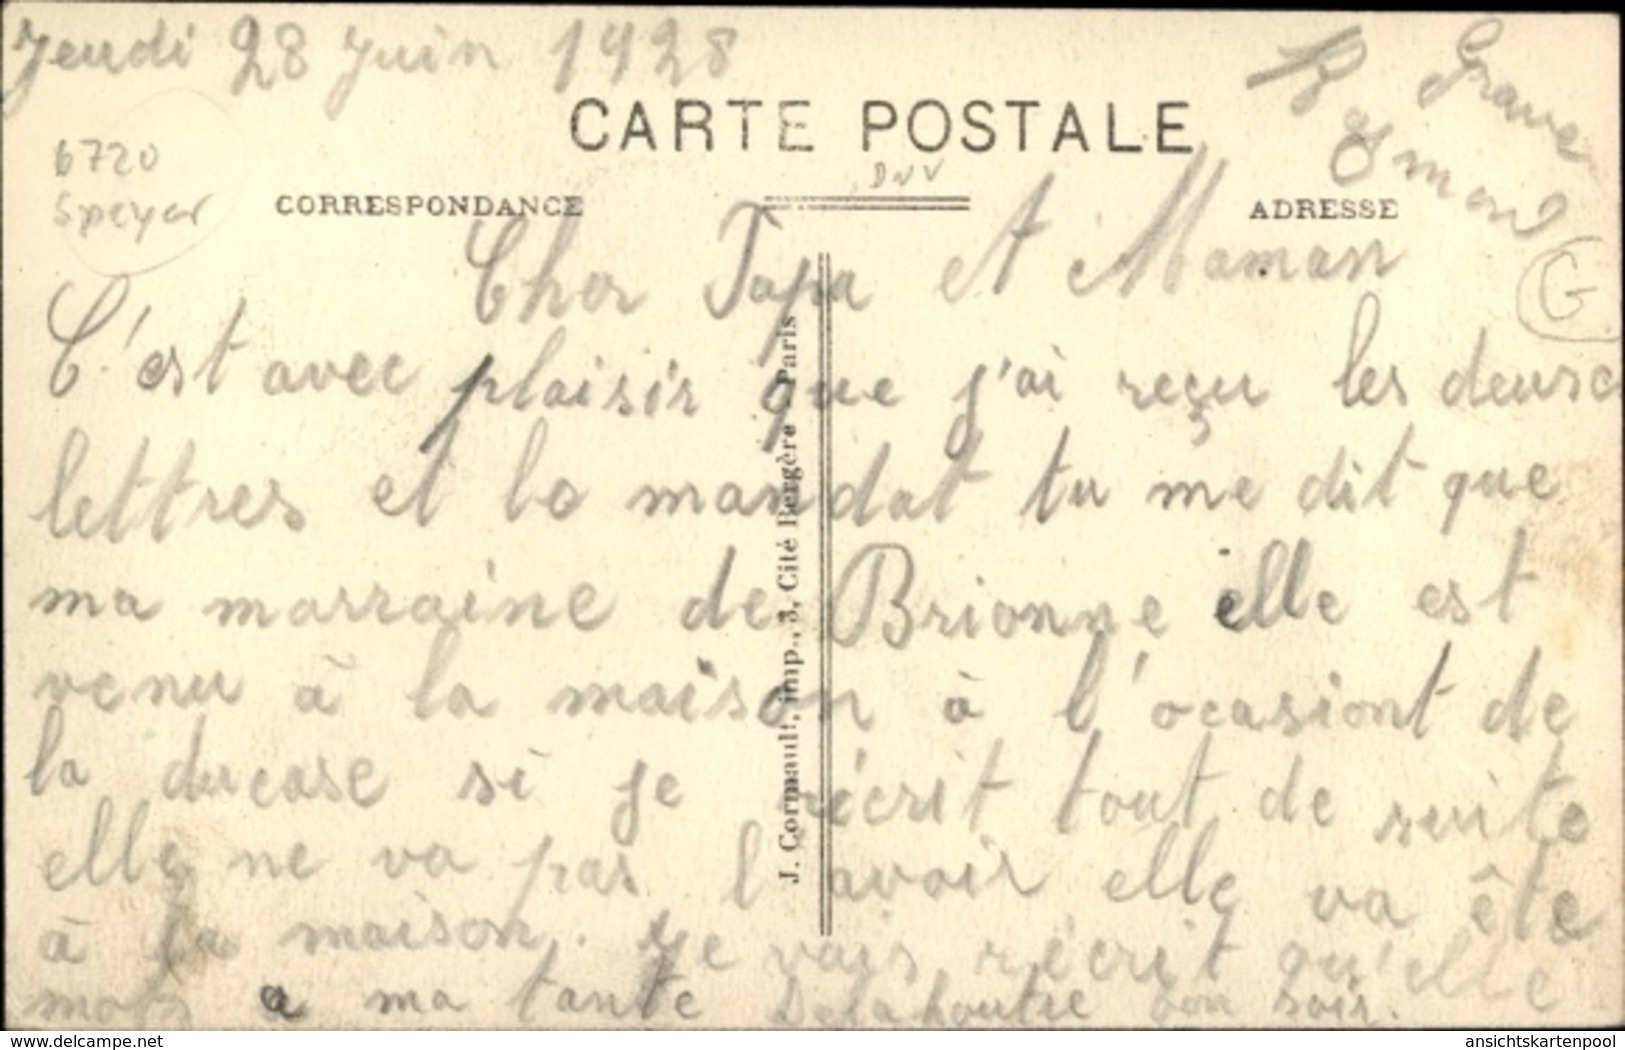 Jeudi 28 Juin 1928
Gravez
Raymond
CARTE POSTALE
6720
Speyer
DNV
CORRESPONDANCE
ADRESSE
G
Cher Papa et Maman
C'est avec plaisir que j'ai reçu les deux
lettres et le mandat tu me dit que
ma marraine de Brionne elle est
venu à la maison à l'ocasiont de
la ducase si je récrit tout de suite
elle ne va pas l'avoir elle va ête
à la maison. Je vais récrit qu'elle
mots a ma tante Delahoutre bon soir.
J. Cormault, imp., 3, Cité Bergère, Paris
www.akpool.de
ansichtskartenpool